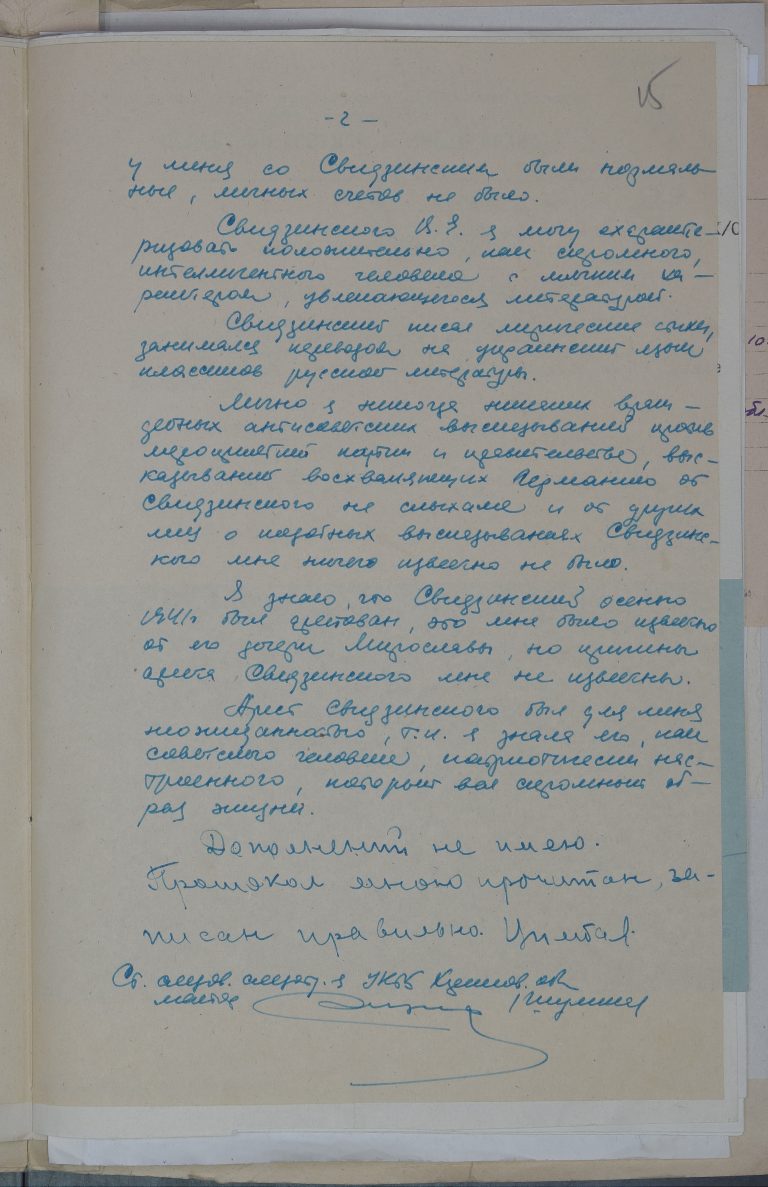 15
- 2 -
у меня со Свидзинским были нормаль-
ные, личных счетов не было.
Свидзинского В. Е. я могу охаракте-
ризовать положительно, как скромного,
интеллигентного человека с мягким ха-
рактером, увлекающегося литературой.
Свидзинский писал лирические стихи,
занимался переводом на украинский язык
классиков русской литературы.
Лично я никогда никаких враж-
дебных антисоветских высказываний против
мероприятий партии и правительства, выс-
казываний восхваляющих Германию от
Свидзинского не слыхала и от других
лиц о подобных высказываниях Свидзинс-
кого мне ничего известно не было.
Я знаю, что Свидзинский осенью
1941г был арестован, это мне было известно
от его дочери Мирославы, но причины
ареста Свидзинского мне не известны.
Арест Свидзинского был для меня
неожиданностью, т.к. я знала его, как
советского человека, патриотически нас-
троенного, который вел скромный об-
раз жизни.
Дополнений не имею.
Протокол мною прочитан, за-
писан правильно. Цимбал
Ст. следов. следот. я УКГБ